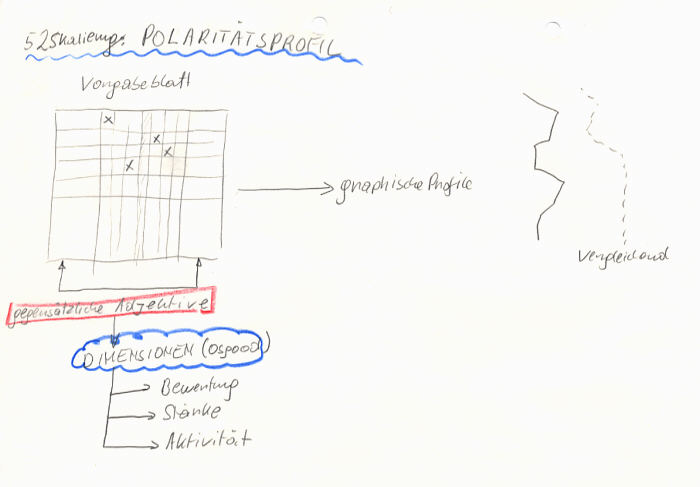 52 Skalierung: POLARITÄTSPROFIL
Vorgabeblatt
x
x
x
x
graphische Profile
vergleichend
gegensätzliche Adjektive
DIMENSIONEN (Osgood)
Bewertung
Stärke
Aktivität